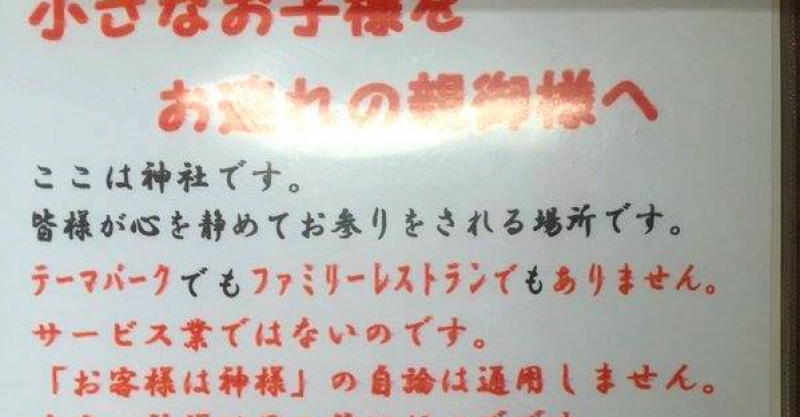 小さなお子様を
お連れの親御様へ
ここは神社です。
皆様が心を静めてお参りをされる場所です。
テーマパークでもファミリーレストランでもありません。
サービス業ではないのです。
「お客様は神様」の自論は通用しません。